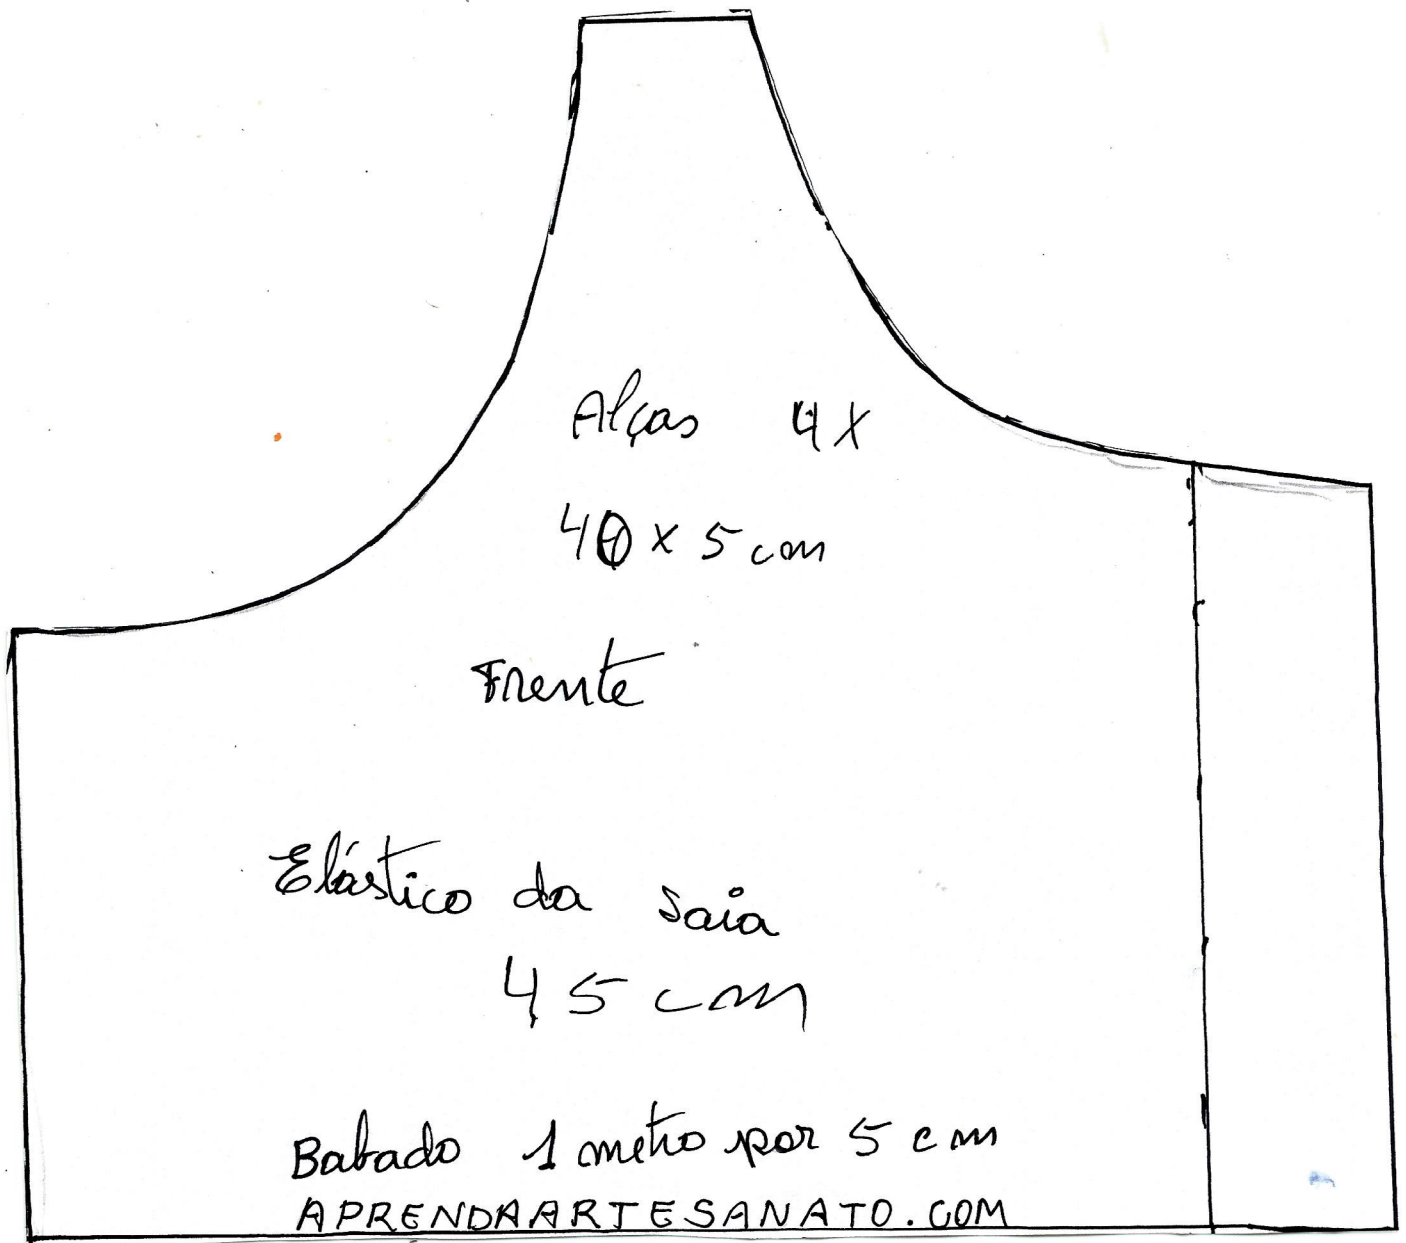 Alças 4X
40 x 5 cm
Frente
Elástico da saia
45 cm
Babado 1 metro por 5 cm
APRENDAARTESANATO.COM